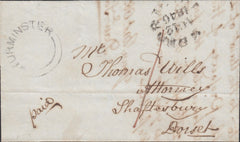 STURMINSTER
Mr
Thomas Wills
Attorney
Shaftesbury
Dorset
paid